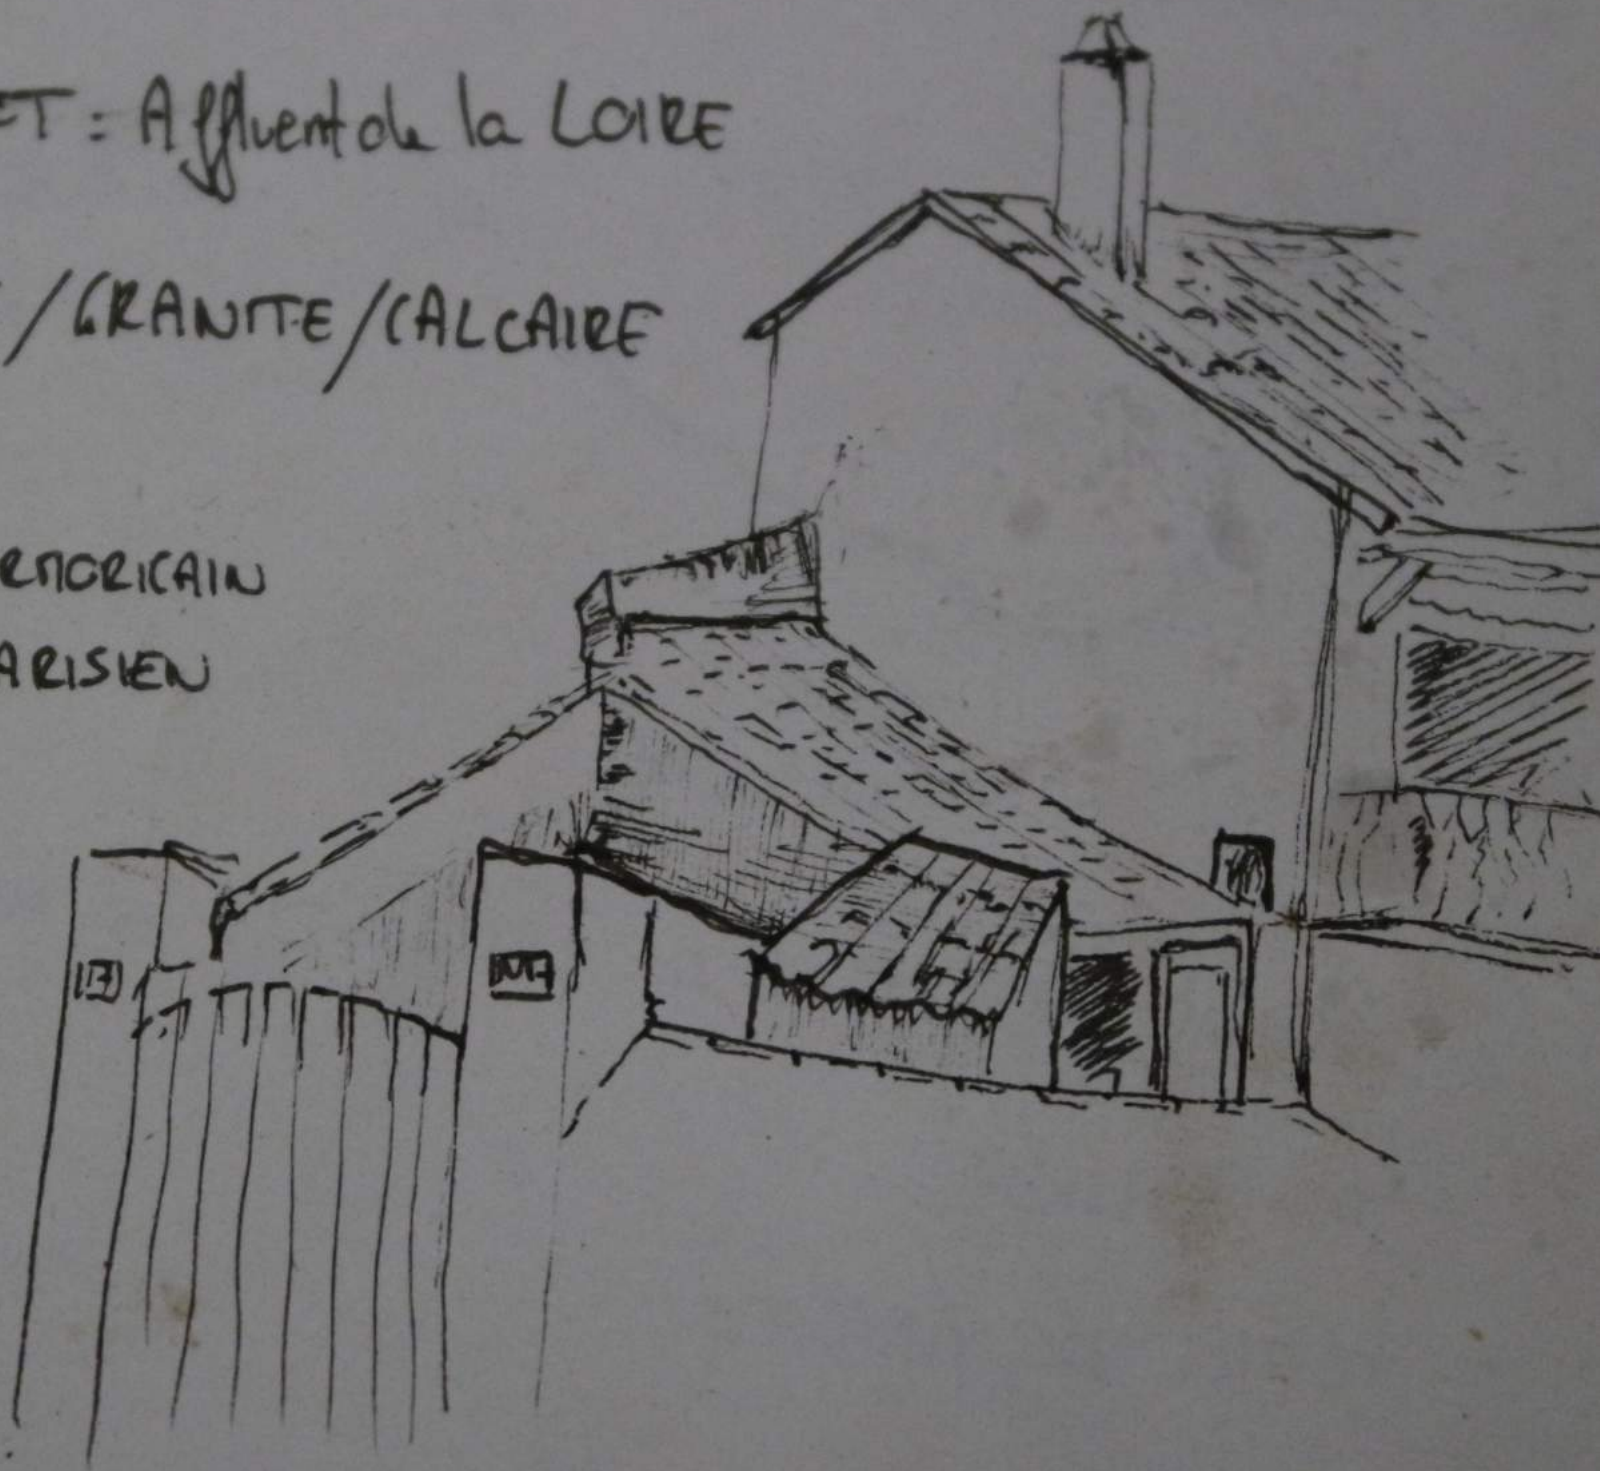 ET : Affluent de la LOIRE
/GRANITE/CALCAIRE
RMORICAIN
ARISIEN
17